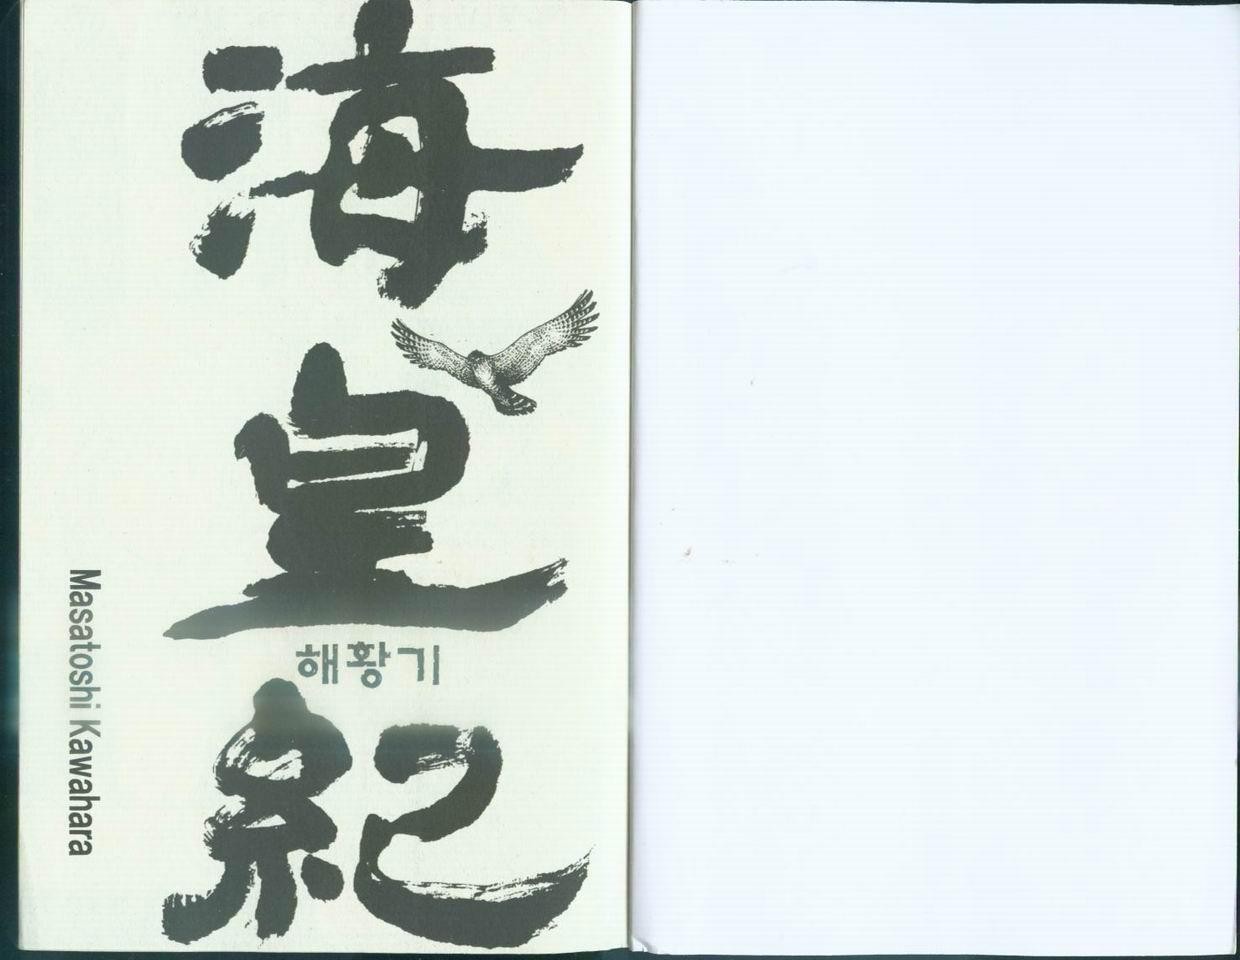 海皇紀
해황기
Masatoshi Kawahara